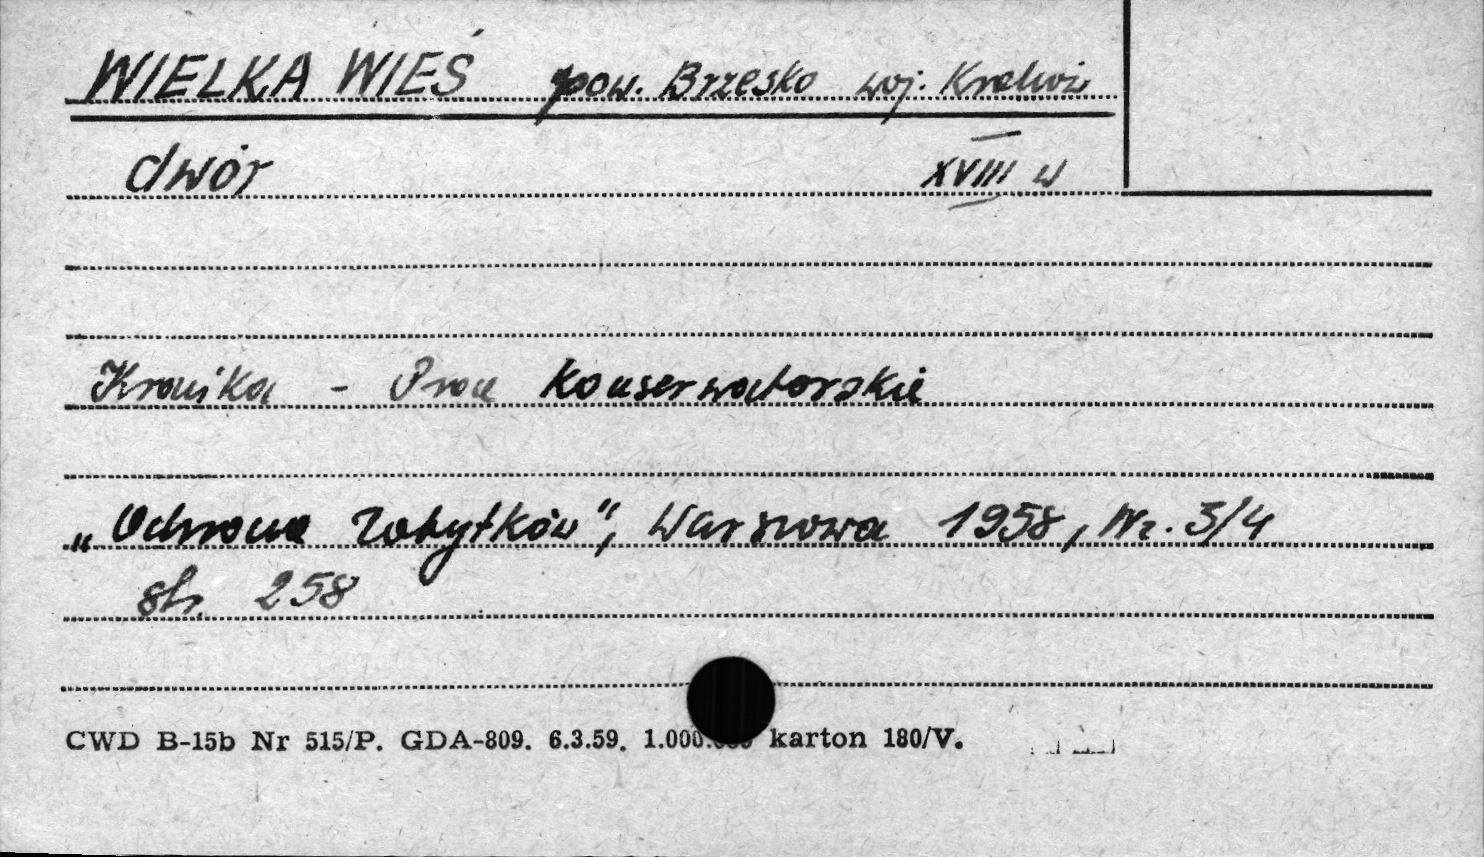 WIELKA WIEŚ pow. Brzesko woj. Kraków
dwór XVIII w
Kronika - Prace Konserwatorskie
„Ochrona Zabytków", Warszawa 1958, Nr. 3/4
str. 258
CWD B-15b Nr 515/P. GDA-809. 6.3.59. 1.000.000 karton 180/V.